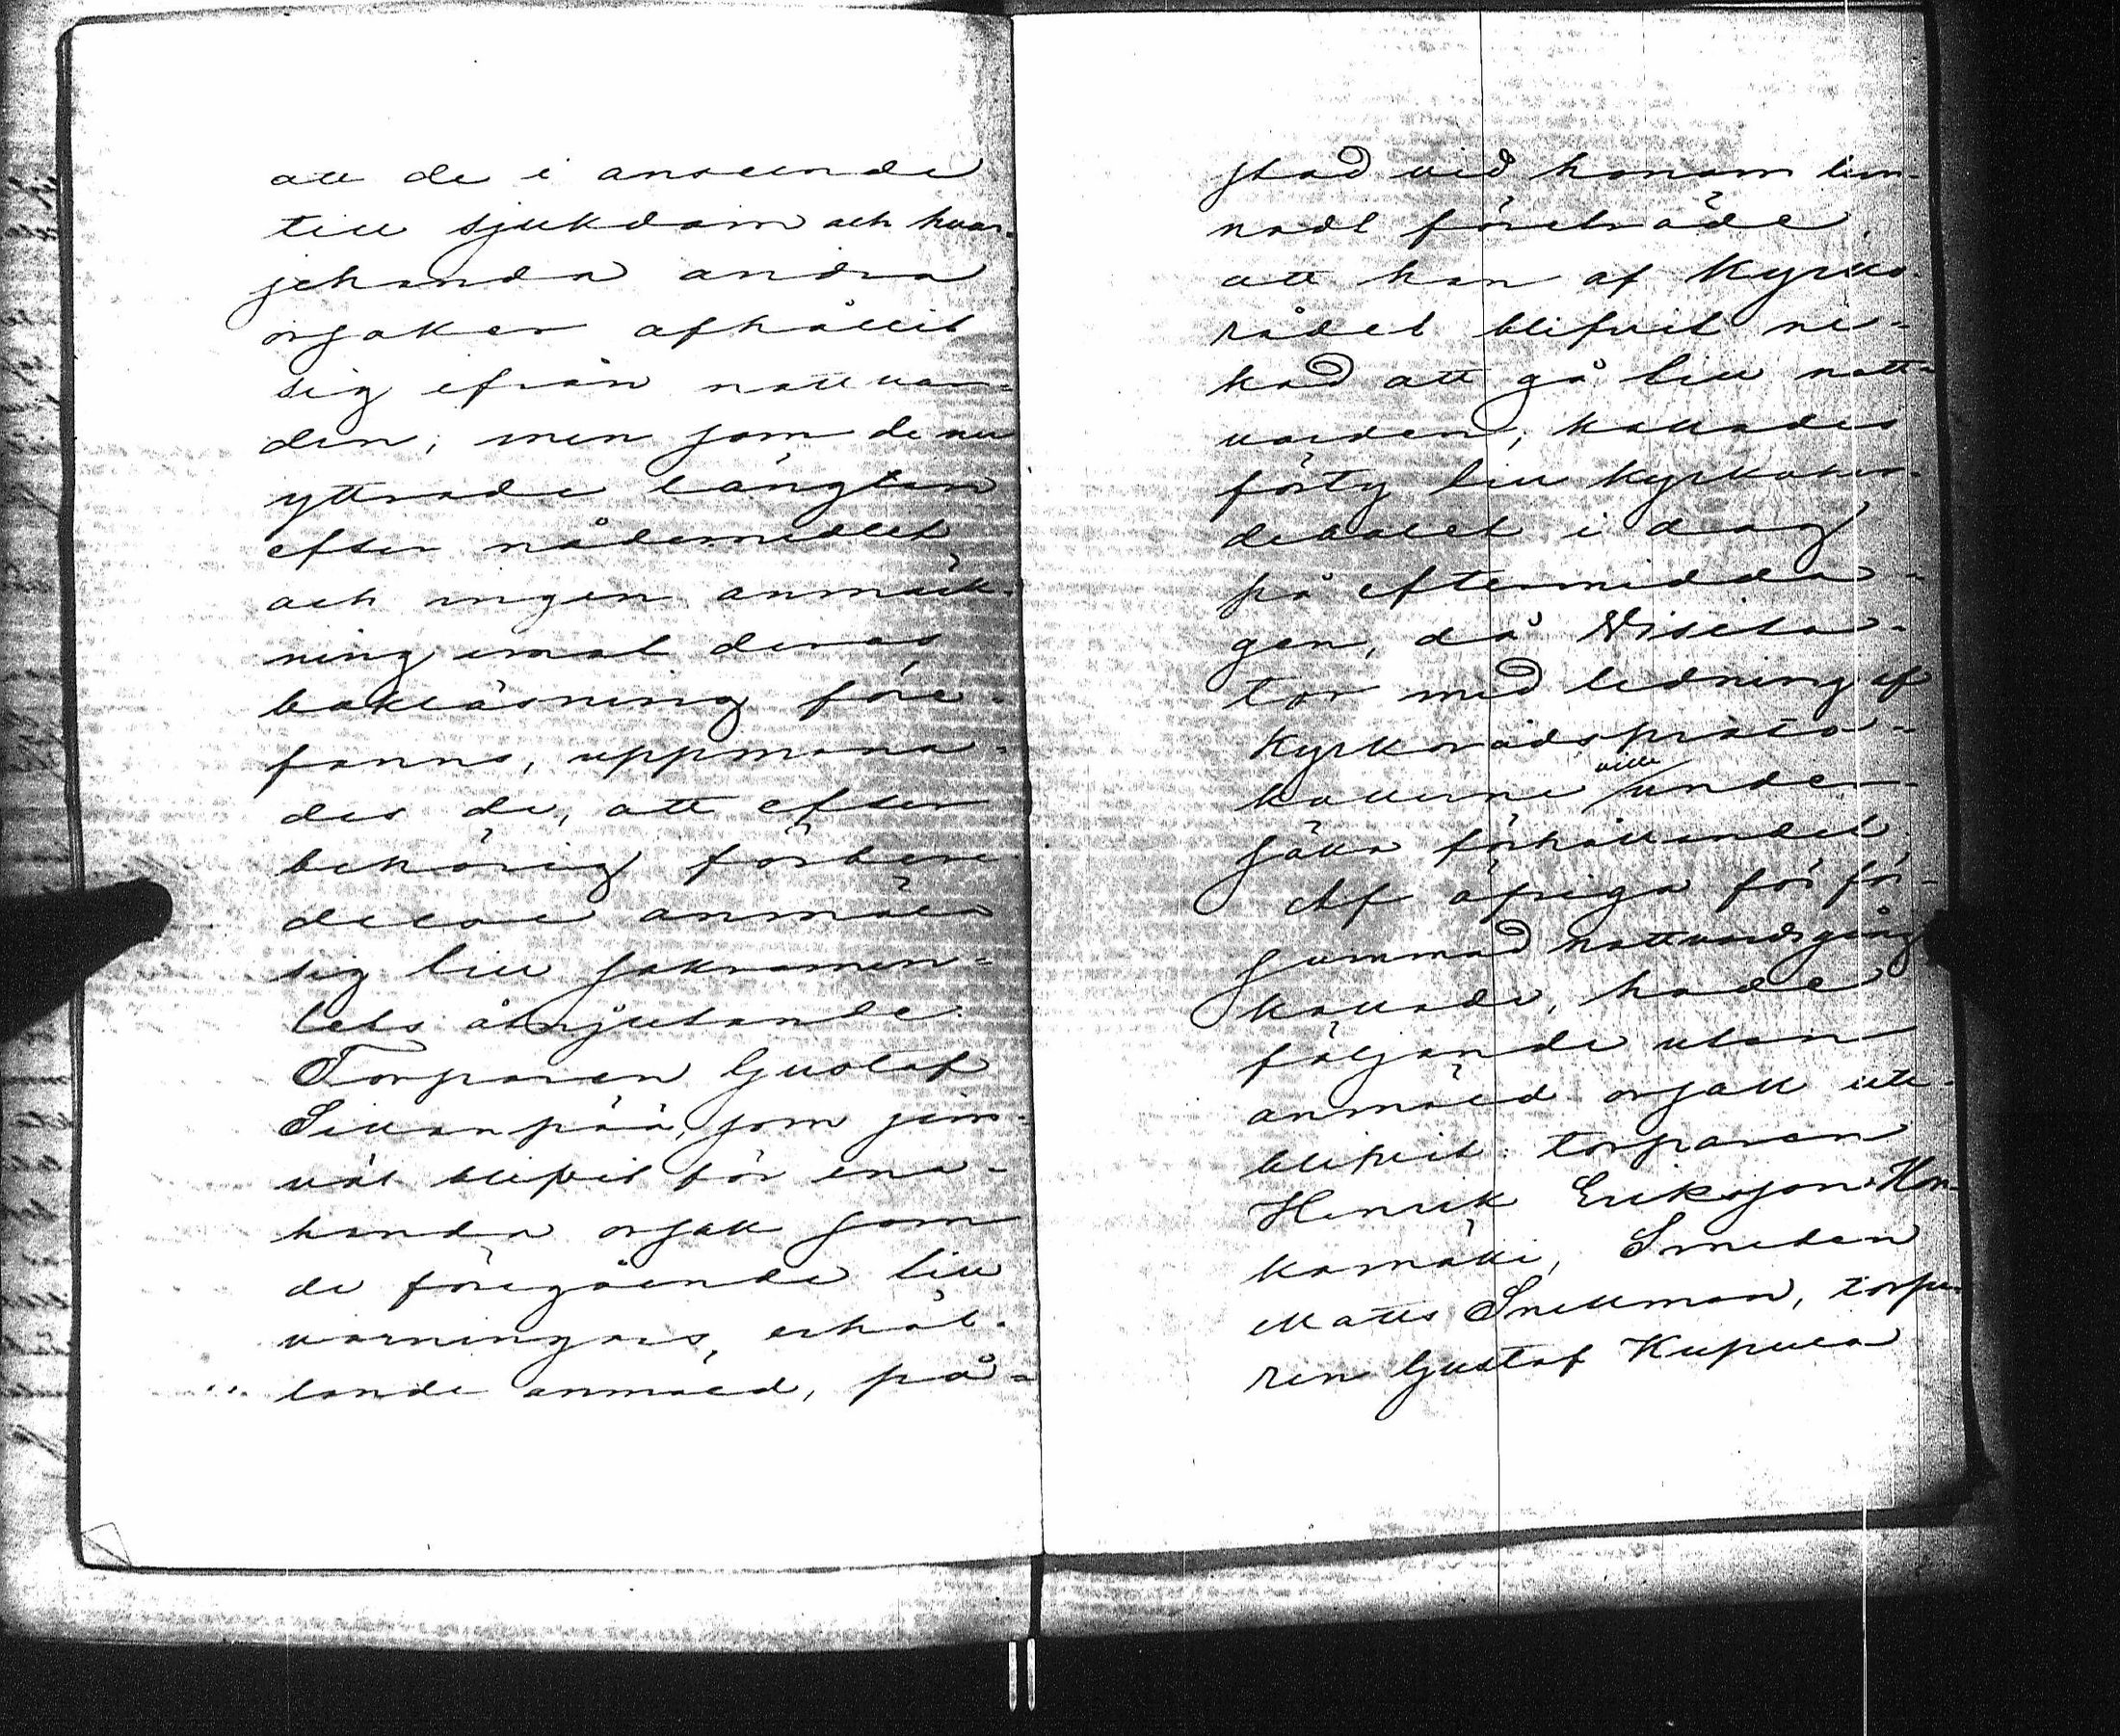 att de i anseende
till sjukdom och hvar-
jehanda andra
orsaker afhållit
sig ifrån nattvar-
den; men som de nu
yttrade längtan
efter nådemedlet,
och ingen anmärk-
ning emot deras
bokläsning före-
fanns, uppmana-
des de, att efter
behörig förbere
delse anmäla
sig till sakramen-
tets åtnjutande.
Torparen Gustaf
Sillanpää, som jem-
väl blifvit för ena-
handa orsak som
de föregående till
varningars, erhål-
lande anmäld, på-
stod vid honom lem-
nadt företräde,
att han af Kyrko-
rådet blifvit ne-
kad att gå till natt-
varden; kallades
förty till Kyrkoher-
debolet i dag
på eftermidda-
gen, då Visita-
tor med ledning af
Kyrkorådsproto-
kollerne ville under-
söka förhållandet.
Af öfriga för för-
summad nattvardsgång
kallade, hade
följande utan
anmäld orsak ute-
blifvit: torparen
Henrik Eriksson Kor-
kamäki, Smeden
Matts Snellman, torpa-
ren Gustaf